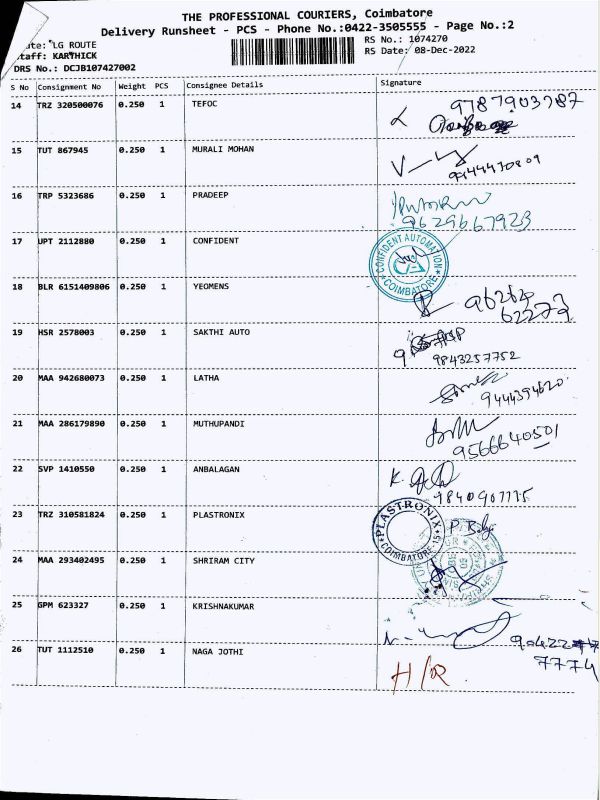 THE PROFESSIONAL COURIERS, Coimbatore
Delivery Runsheet - PCS - Phone No.:0422-3505555 - Page No.:2
LG ROUTE
RS No.: 1074270
Staff: KARTHICK
RS Date: 08-Dec-2022
DRS No.: DCJB107427002
S No Consignment No Weight PCS Consignee Details Signature
14 TRZ 320500076 0.250 1 TEFOC
15 TUT 867945 0.250 1 MURALI MOHAN
16 TRP 5323686 0.250 1 PRADEEP 9629667923
17 UPT 2112880 0.250 1 CONFIDENT CONFIDENT AUTOMATION COIMBATORE
18 BLR 6151409806 0.250 1 YEOMENS
19 HSR 2578003 0.250 1 SAKTHI AUTO
9843257752
20 MAA 942680073 0.250 1 LATHA
9444394620
21 MAA 286179890 0.250 1 MUTHUPANDI
9566640501
22 SVP 1410550 0.250 1 ANBALAGAN
23 TRZ 310581824 0.250 1 PLASTRONIX PLASTRONIX COIMBATORE-15
24 MAA 293402495 0.250 1 SHRIRAM CITY
25 GPM 623327 0.250 1 KRISHNAKUMAR
26 TUT 1112510 0.250 1 NAGA JOTHI
H/R